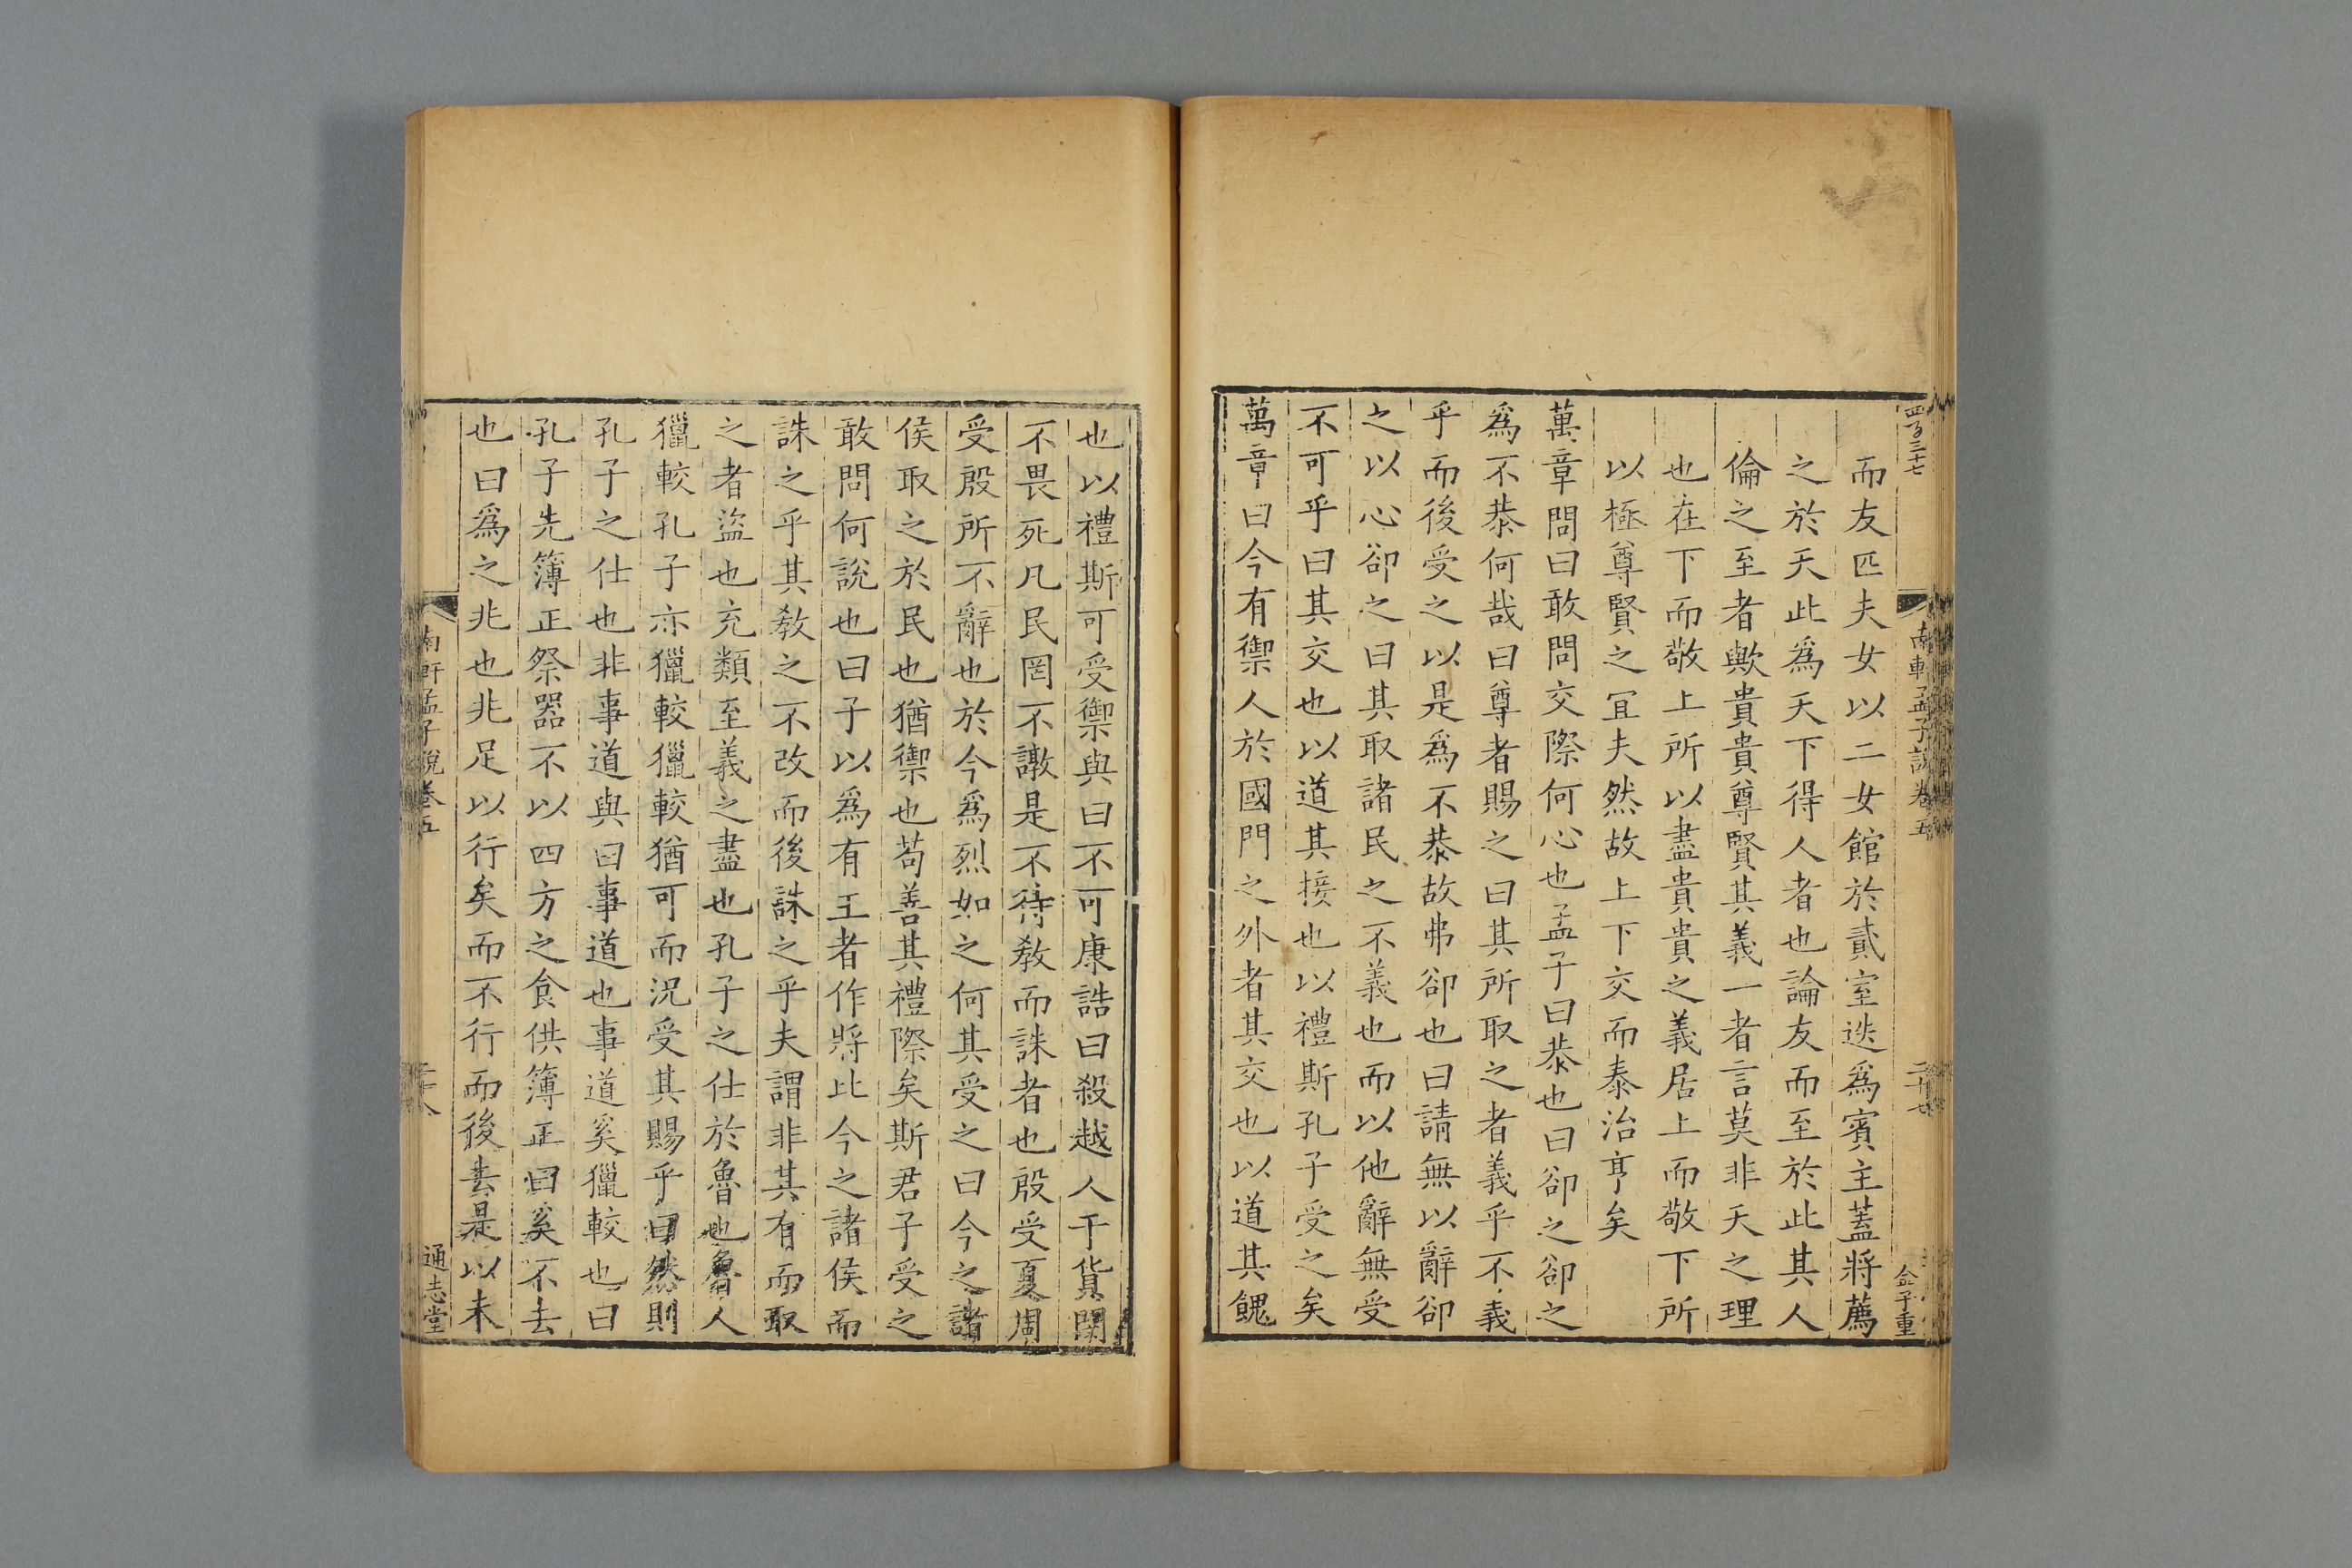 四百三十七
南軒孟子說卷五
二十七
金子重
而友匹夫女以二女館於貳室迭爲賓主蓋將薦
之於天此爲天下得人者也論友而至於此其人
倫之至者歟貴貴尊賢其義一者言莫非天之理
也在下而敬上所以盡貴貴之義居上而敬下所
以極尊賢之宜夫然故上下交而泰治亨矣
萬章問曰敢問交際何心也孟子曰恭也曰卻之卻之
爲不恭何哉曰尊者賜之曰其所取之者義乎不義
乎而後受之以是爲不恭故弗卻也曰請無以辭卻
之以心卻之曰其取諸民之不義也而以他辭無受
不可乎曰其交也以道其接也以禮斯孔子受之矣
萬章曰今有禦人於國門之外者其交也以道其餽
也以禮斯可受禦與曰不可康誥曰殺越人于貨閔
不畏死凡民罔不譈是不待教而誅者也殷受夏周
受殷所不辭也於今爲烈如之何其受之曰今之諸
侯取之於民也猶禦也苟善其禮際矣斯君子受之
敢問何說也曰子以爲有王者作將比今之諸侯而
誅之乎其教之不改而後誅之乎夫謂非其有而取
之者盜也充類至義之盡也孔子之仕於魯也魯人
獵較孔子亦獵較獵較猶可而況受其賜乎曰然則
孔子之仕也非事道與曰事道也事道奚獵較也曰
孔子先簿正祭器不以四方之食供簿正曰奚不去
也曰爲之兆也兆足以行矣而不行而後去是以未
南軒孟子說卷五
二十八
通志堂